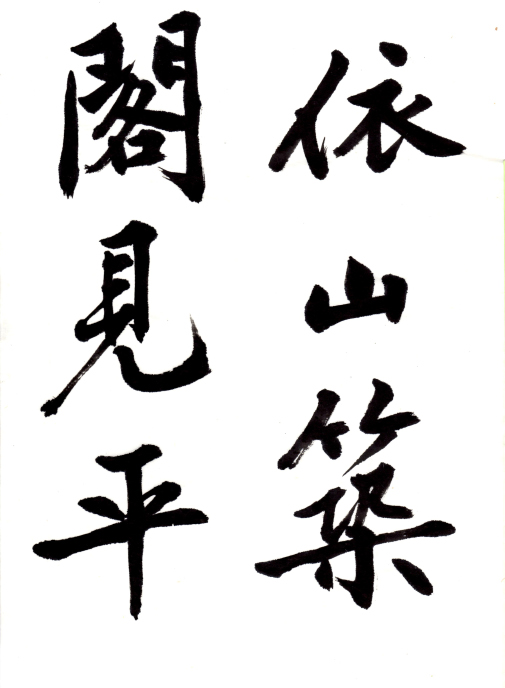 依山築
閣見平